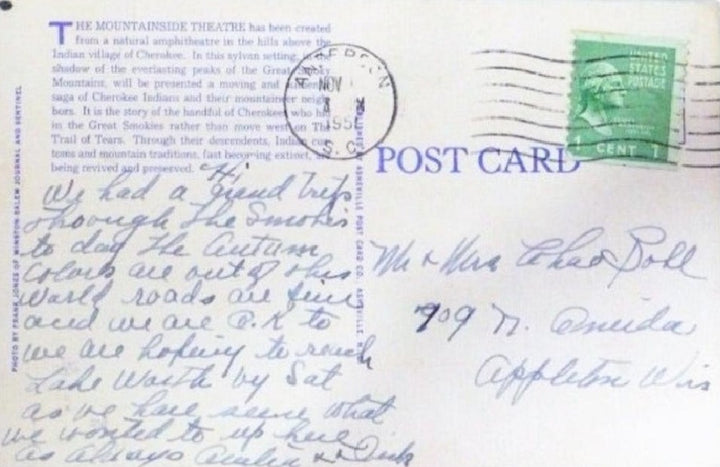 THE MOUNTAINSIDE THEATRE has been created
from a natural amphitheatre in the hills above the
Indian village of Cherokee. In this sylvan setting, in the
shadow of the everlasting peaks of the Great Smoky
Mountains, will be presented a moving and
saga of Cherokee Indians and their mountaineer neigh-
bors. It is the story of the handful of Cherokees who hid
in the Great Smokies rather than move west on The
Trail of Tears. Through their descendents, Indian cus-
toms and mountain traditions, fast becoming extinct, are
being revived and preserved.
PHOTO BY FRANK JONES OF WINSTON-SALEM JOURNAL AND SENTINEL
ASHEVILLE POST CARD CO., ASHEVILLE, N.
ANDERSON
NOV
1956
S. C.
UNITED
STATES
POSTAGE
1 CENT 1
POST CARD
Hi
We had a grand trip
through the Smokies
to day the Autum
Colors are out of this
World roads are fine
and we are O.K to
we are hoping to reach
Lake Worth by Sat
as we have seen what
we wanted to up here
as always & Dick
Mr & Mrs Chas
909 N. Oneida
Appleton Wis